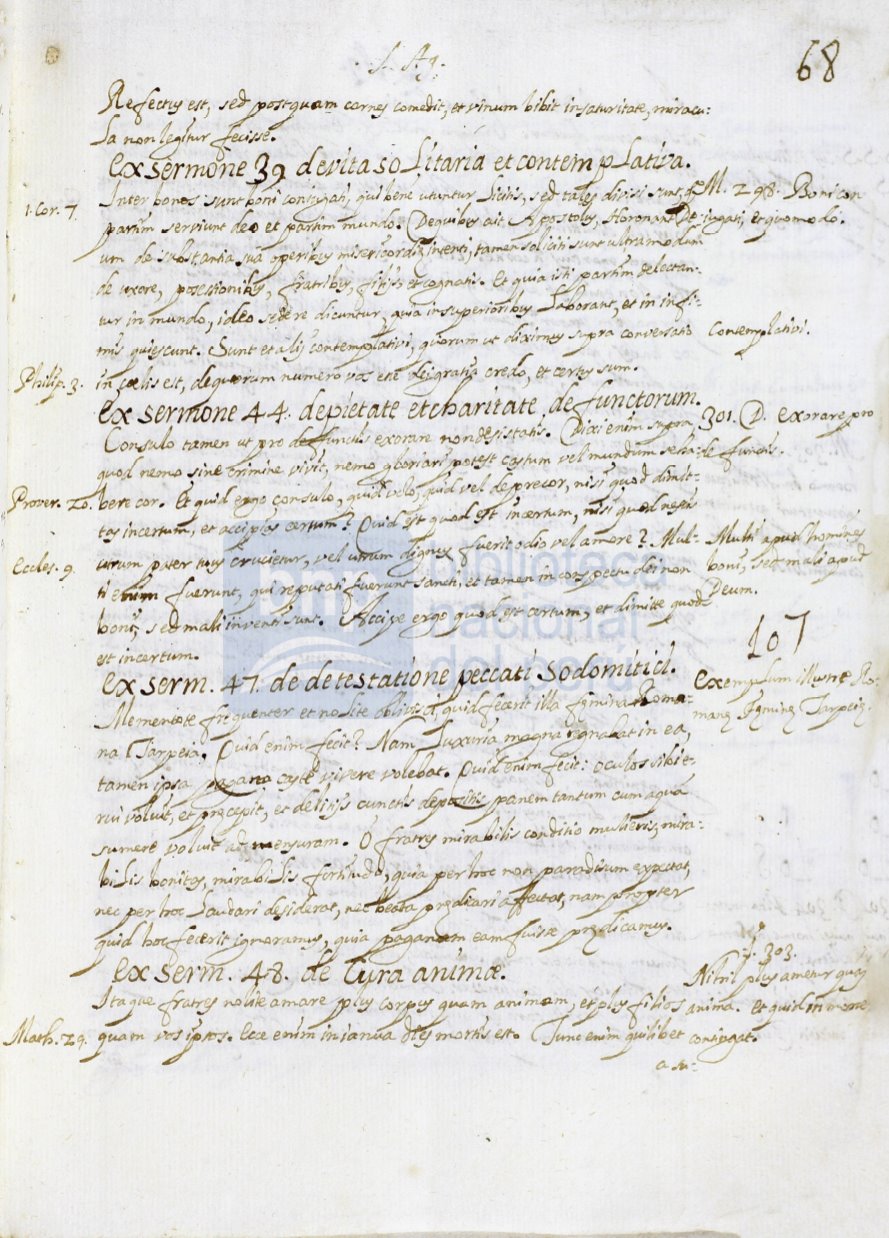 S. Ag.
68
Refectus est, sed postquam carnes comedit, et vinum bibit in saturitate, miracu-
la non legitur fecisse.
Ex sermone 39 de vita solitaria et contemplativa.
Inter bonos sunt boni conjugati, qui bene utuntur licitis, sed tales divisi sunt,
M. 298. Boni con
1. Cor. 7.
partim serviunt deo et partim mundo. De quibus ait Apostolus,
jugati, et quomodo.
um de substantia sua operibus misericordiæ intenti, tamen soliciti sunt ultra modum
de uxore, possessionibus, fratribus, filijs et cognatis. Et quia isti partim delectan-
tur in mundo, ideo sedere dicuntur, quia in superioribus laborant, et in infi-
mis quiescunt. Sunt et alij contemplativi, quorum ut diximus supra conversatio
Contemplativi.
Philip. 3.
in cœlis est, de quorum numero vos esse dei gratia credo, et certus sum.
Ex sermone 44. de pietate et charitate defunctorum.
Consulo tamen ut pro defunctis exorare non desistatis. Dixi enim supra
301. D. Exorare pro
quod nemo sine crimine vivit, nemo gloriari potest castum vel mundum se ha-
defunctis.
Prover. 20.
bere cor. Et quid ergo consulo, quid volo, quid vel deprecor, nisi quod dimit-
tas incertum, et accipias certum? Quid est quod est incertum, nisi quod nescis
utrum pater tuus crucietur, vel utrum dignus fuerit odio vel amore? Mul-
Multi apud homines
Eccles. 9.
ti enim fuerunt, qui reputati fuerunt sancti, et tamen in conspectu dei non
boni, sed mali apud
Deum.
boni, sed mali inventi sunt. Accipe ergo quod est certum, et dimitte quod
est incertum.
107
Ex serm. 47. de detestatione peccati sodomitici.
Exemplum illustre Ro-
Mementote frequenter et nolite oblivisci, quid fecerit illa fœmina Roma-
manæ fœminæ Tarpeiæ.
na Tarpeia. Quid enim fecit? Nam luxuria magna regnabat in ea,
tamen ipsa pagana caste vivere volebat. Quid enim fecit: oculos sibi e-
rui voluit, et præcepit, et delitijs cunctis depositis panem tantum cum aqua
sumere voluit ad mensuram. O fratres mirabilis conditio mulieris, mira-
bilis bonitas, mirabilis fortitudo, quia per hoc non paradisum expectat,
nec per hoc laudari desiderat, nec beata prædicari affectat, nam propter
quid hoc fecerit ignoramus, quia paganam eam fuisse prædicamus.
Ex serm. 48. de Cura animæ.
303.
Nihil plus ametur quam
Itaque fratres nolite amare plus corpus quam animam, et plus filios
anima. Et quid in morte
Math. 24.
quam vos ipsos. Ecce enim in janua dies mortis est. Tunc enim quilibet
contingat.
a su-
biblioteca
nacional
del perú